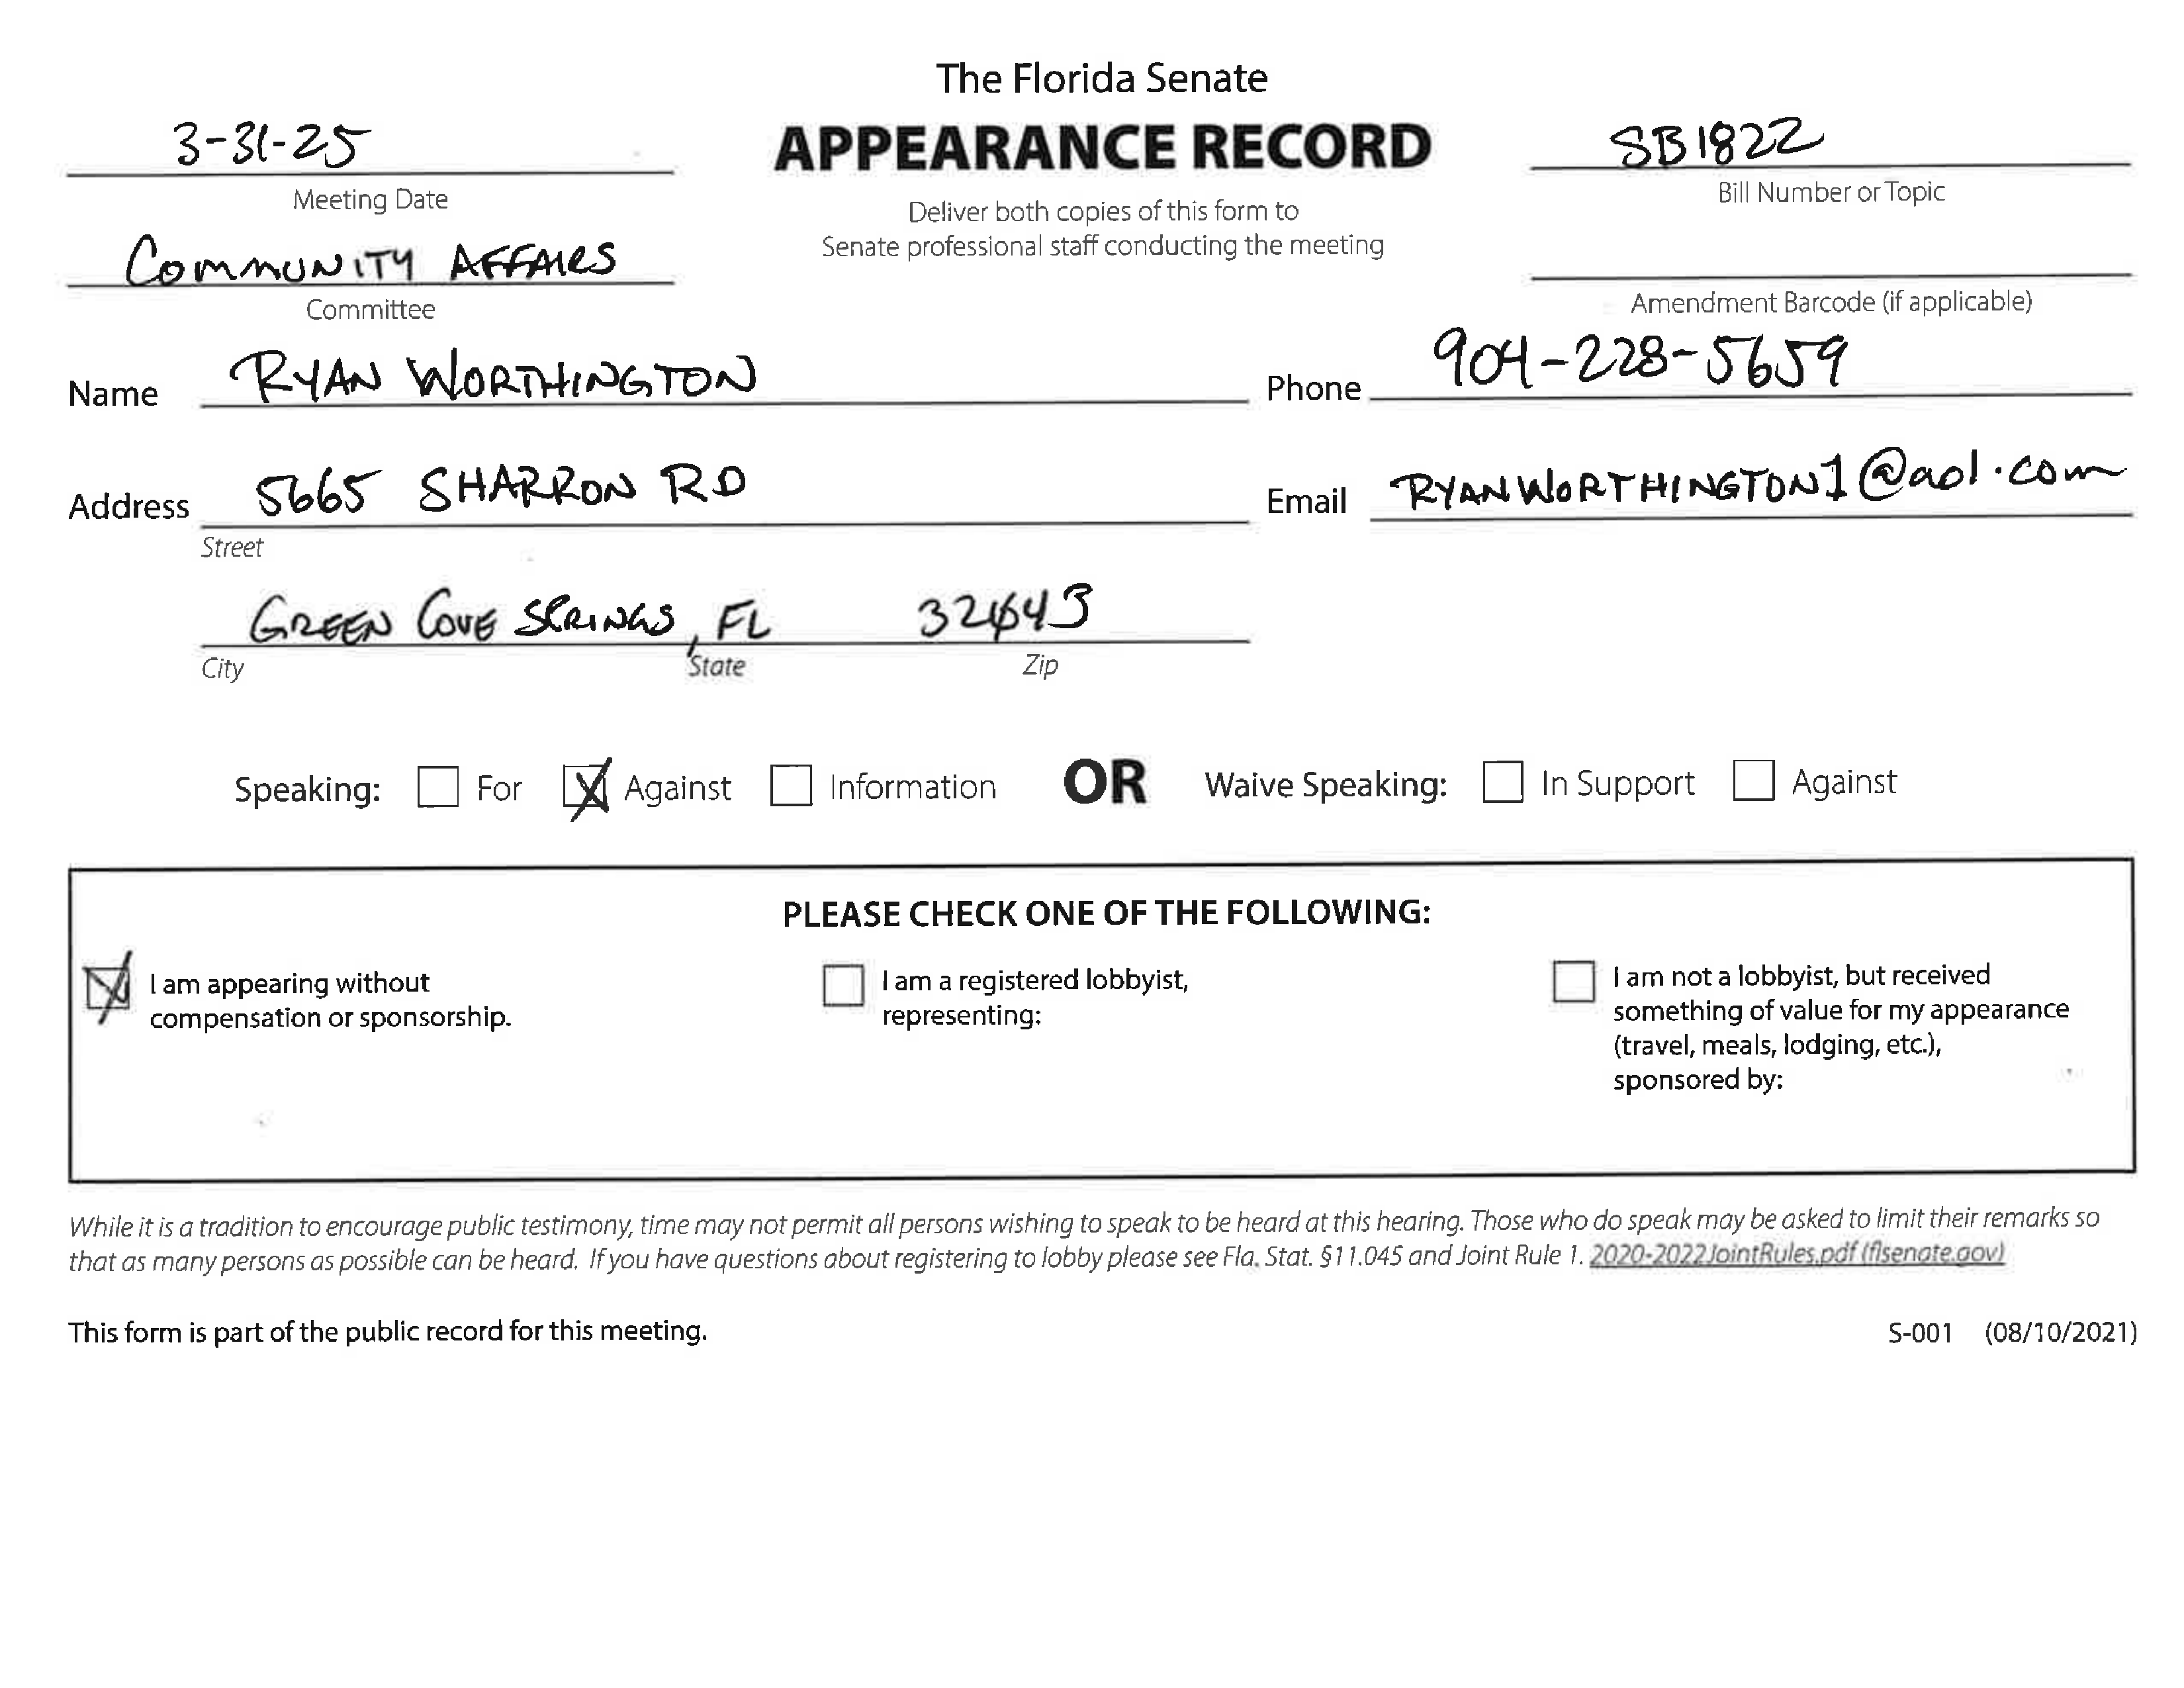 The Florida Senate
APPEARANCE RECORD
Deliver both copies of this form to
Senate professional staff conducting the meeting
3-31-25
Meeting Date
SB1822
Bill Number or Topic
COMMUNITY AFFAIRS
Committee
Amendment Barcode (if applicable)
Name RYAN WORTHINGTON
Phone 904-228-5659
Address 5665 SHARRON RD
Email RYANWORTHINGTON1@aol.com
Street
GREEN COVE SPRINGS, FL
City State Zip
Speaking: For Against Information OR Waive Speaking: In Support Against
PLEASE CHECK ONE OF THE FOLLOWING:
I am appearing without
compensation or sponsorship.
I am a registered lobbyist,
representing:
I am not a lobbyist, but received
something of value for my appearance
(travel, meals, lodging, etc.),
sponsored by:
While it is a tradition to encourage public testimony, time may not permit all persons wishing to speak to be heard at this hearing. Those who do speak may be asked to limit their remarks so
that as many persons as possible can be heard. If you have questions about registering to lobby please see Fla. Stat. §11.045 and Joint Rule 1. 2020-2022JointRules.pdf (flsenate.gov)
This form is part of the public record for this meeting.
S-001 (08/10/2021)